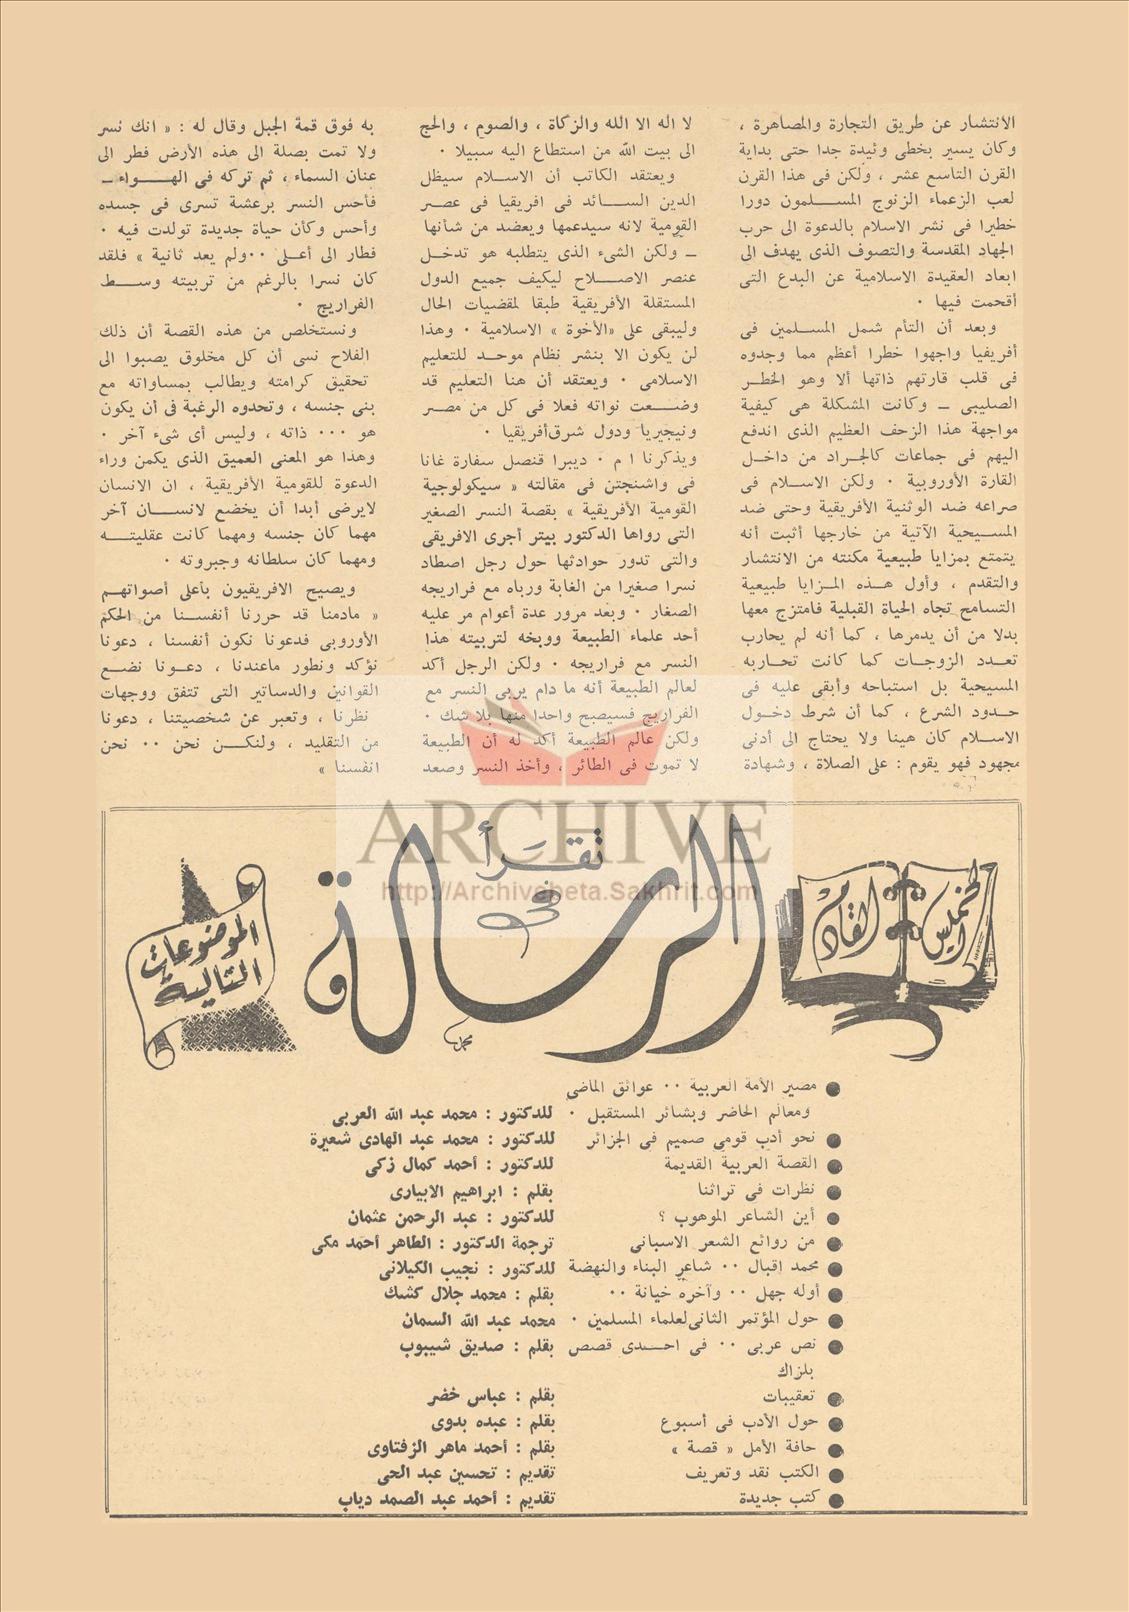 الانتشار عن طريق التجارة والمصاهرة ،
وكان يسير بخطى وئيدة جدا حتى بداية
القرن التاسع عشر ، ولكن فى هذا القرن
لعب الزعماء الزنوج المسلمون دورا
خطيرا فى نشر الاسلام بالدعوة الى حرب
الجهاد المقدسة والتصوف الذى يهدف الى
ابعاد العقيدة الاسلامية عن البدع التى
أقحمت فيها ٠
وبعد أن التأم شمل المسلمين فى
أفريقيا واجهوا خطرا أعظم مما وجدوه
فى قلب قارتهم ذاتها ألا وهو الخطر
الصليبى ــ وكانت المشكلة هى كيفية
مواجهة هذا الزحف العظيم الذى اندفع
اليهم فى جماعات كالجراد من داخل
القارة الأوروبية ٠ ولكن الاسلام فى
صراعه ضد الوثنية الأفريقية وحتى ضد
المسيحية الآتية من خارجها أثبت أنه
يتمتع بمزايا طبيعية مكنته من الانتشار
والتقدم ، وأول هذه المزايا طبيعية
التسامح تجاه الحياة القبلية فامتزج معها
بدلا من أن يدمرها ، كما أنه لم يحارب
تعدد الزوجات كما كانت تحاربه
المسيحية بل استباحه وأبقى عليه فى
حدود الشرع ، كما أن شرط دخول
الاسلام كان هينا ولا يحتاج الى أدنى
مجهود فهو يقوم : على الصلاة ، وشهادة
لا اله الا الله والزكاة ، والصوم ، والحج
الى بيت الله من استطاع اليه سبيلا ٠
ويعتقد الكاتب أن الاسلام سيظل
الدين السائد فى افريقيا فى عصر
القومية لانه سيدعمها ويعضد من شأنها
ــ ولكن الشىء الذى يتطلبه هو تدخل
عنصر الاصلاح ليكيف جميع الدول
المستقلة الأفريقية طبقا لمقضيات الحال
وليبقى على «الأخوة » الاسلامية ٠ وهذا
لن يكون الا بنشر نظام موحد للتعليم
الاسلامى ٠ ويعتقد أن هنا التعليم قد
وضعت نواته فعلا فى كل من مصر
ونيجيريا ودول شرق أفريقيا ٠
ويذكرنا ا م ٠ ديبرا قنصل سفارة غانا
فى واشنجتن فى مقالته « سيكولوجية
القومية الأفريقية » بقصة النسر الصغير
التى رواها الدكتور بيتر أجرى الافريقى
والتى تدور حوادثها حول رجل اصطاد
نسرا صغيرا من الغابة ورباه مع فراريجه
الصغار ٠ وبعد مرور عدة أعوام مر عليه
أحد علماء الطبيعة ووبخه لتربيته هذا
النسر مع فراريجه ٠ ولكن الرجل أكد
لعالم الطبيعة أنه ما دام يربى النسر مع
الفراريج فسيصبح واحدا منها بلا شك ٠
ولكن عالم الطبيعة أكد له أن الطبيعة
لا تموت فى الطائر ، وأخذ النسر وصعد
به فوق قمة الجبل وقال له : « انك نسر
ولا تمت بصلة الى هذه الأرض فطر الى
عنان السماء ، ثم تركه فى الهواء ــ
فأحس النسر برعشة تسرى فى جسده
وأحس وكأن حياة جديدة تولدت فيه ٠
فطار الى أعلى ٠٠ ولم يعد ثانية » فلقد
كان نسرا بالرغم من تربيته وسط
الفراريج ٠
ونستخلص من هذه القصة أن ذلك
الفلاح نسى أن كل مخلوق يصبوا الى
تحقيق كرامته ويطالب بمساواته مع
بنى جنسه ، وتحدوه الرغبة فى أن يكون
هو ٠٠٠ ذاته ، وليس أى شىء آخر ٠
وهذا هو المعنى العميق الذى يكمن وراء
الدعوة للقومية الأفريقية ، ان الانسان
لايرضى أبدا أن يخضع لانسان آخر
مهما كان جنسه ومهما كانت عقليته
ومهما كان سلطانه وجبروته ٠
ويصيح الافريقيون بأعلى أصواتهم
« مادمنا قد حررنا أنفسنا من الحكم
الأوروبى فدعونا نكون أنفسنا ، دعونا
نؤكد ونطور ماعندنا ، دعونا نضع
القوانين والدساتير التى تتفق ووجهات
نظرنا ، وتعبر عن شخصيتنا ، دعونا
من التقليد ، ولنكن نحن ٠٠ نحن
انفسنا »
ARCHIVE
http://Archivebeta.Sakhrit.com
الخميس القادم
تقرأ فى
الرسالة
محمد
الموضوعات التالية
مصير الأمة العربية ٠٠ عوائق الماضى
ومعالم الحاضر وبشائر المستقبل ٠ للدكتور : محمد عبد الله العربى
نحو أدب قومى صميم فى الجزائر للدكتور : محمد عبد الهادى شعيرة
القصة العربية القديمة للدكتور : أحمد كمال زكى
نظرات فى تراثنا بقلم : ابراهيم الابيارى
أين الشاعر الموهوب ؟ للدكتور : عبد الرحمن عثمان
من روائع الشعر الاسبانى ترجمة الدكتور : الطاهر أحمد مكى
محمد اقبال ٠٠ شاعر البناء والنهضة للدكتور : نجيب الكيلانى
أوله جهل ٠٠ وآخره خيانة ٠٠ بقلم : محمد جلال كشك
حول المؤتمر الثانى لعلماء المسلمين ٠ محمد عبد الله السمان
نص عربى ٠٠ فى احدى قصص بقلم : صديق شيبوب
بلزاك
تعقيبات بقلم : عباس خضر
حول الأدب فى أسبوع بقلم : عبده بدوى
حافة الأمل « قصة » بقلم : أحمد ماهر الزفتاوى
الكتب نقد وتعريف تقديم : تحسين عبد الحى
كتب جديدة تقديم : أحمد عبد الصمد دياب